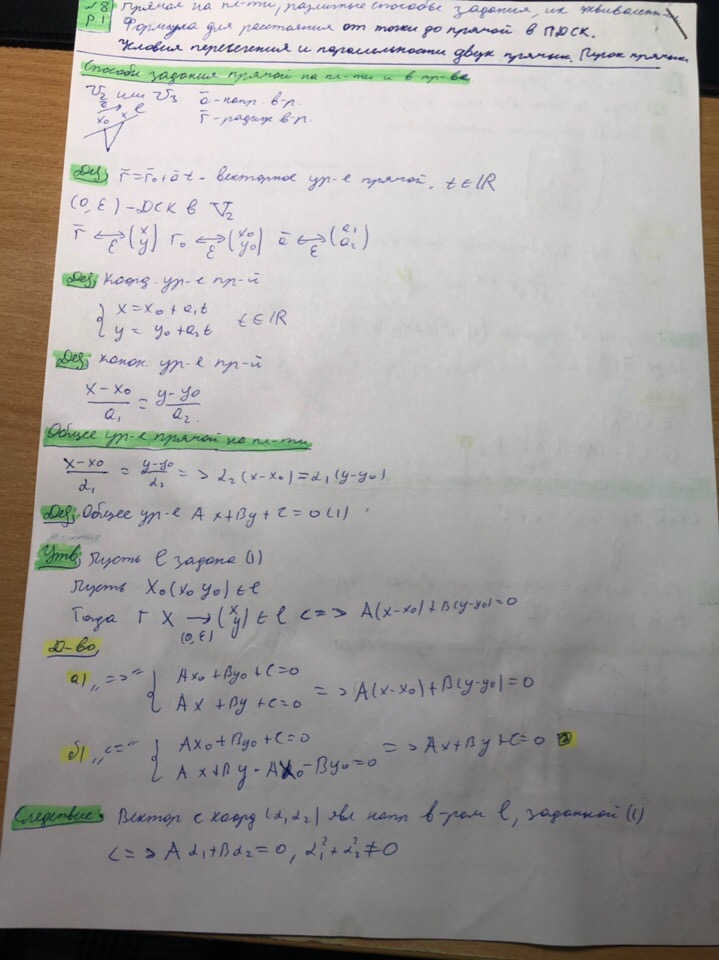 №8 Прямая на пл-ти, различные способы задания, их эквивалентн
р1 Формула для расстояния от точки до прямой в ПДСК.
Условия пересечения и параллельности двух прямых. Пучок прямых
Способы задания прямой на пл-ти и в пр-ве
V₂ или V₃ ā - напр. в-р.
x₀ x ℓ r̄ - радиус в-р.
Def r̄ = r̄₀ + āt - векторное ур-е прямой, t ∈ ℝ
(0, ε) - ДСК в V₂
r̄ ⟷ε (x y) r₀ ⟷ε (x₀ y₀) ā ⟷ε (a₁ a₂)
Def Коорд. ур-е пр-й
{ x = x₀ + a₁t
y = y₀ + a₂t t ∈ ℝ
Def Канон. ур-е пр-й
(x - x₀)/a₁ = (y - y₀)/a₂.
Общее ур-е прямой на пл-ти
(x - x₀)/α₁ = (y - y₀)/α₂ => α₂(x - x₀) = α₁(y - y₀)
Def Общее ур-е Ax + By + C = 0 (1)
Утв Пусть ℓ задана (1)
Пусть X₀(x₀ y₀) ∈ ℓ
Тогда т X →(0, ε) (x y) ∈ ℓ <=> A(x - x₀) + B(y - y₀) = 0
Д-во
а) „=>" { Ax₀ + By₀ + C = 0
Ax + By + C = 0 => A(x - x₀) + B(y - y₀) = 0
б) „<=" { Ax₀ + By₀ + C = 0
Ax + By - Ax₀ - By₀ = 0 => Ax + By + C = 0
Следствие. Вектор с коорд (α₁ α₂) явл напр в-ром ℓ, заданной (1)
<=> Aα₁ + Bα₂ = 0, α₁² + α₂² ≠ 0